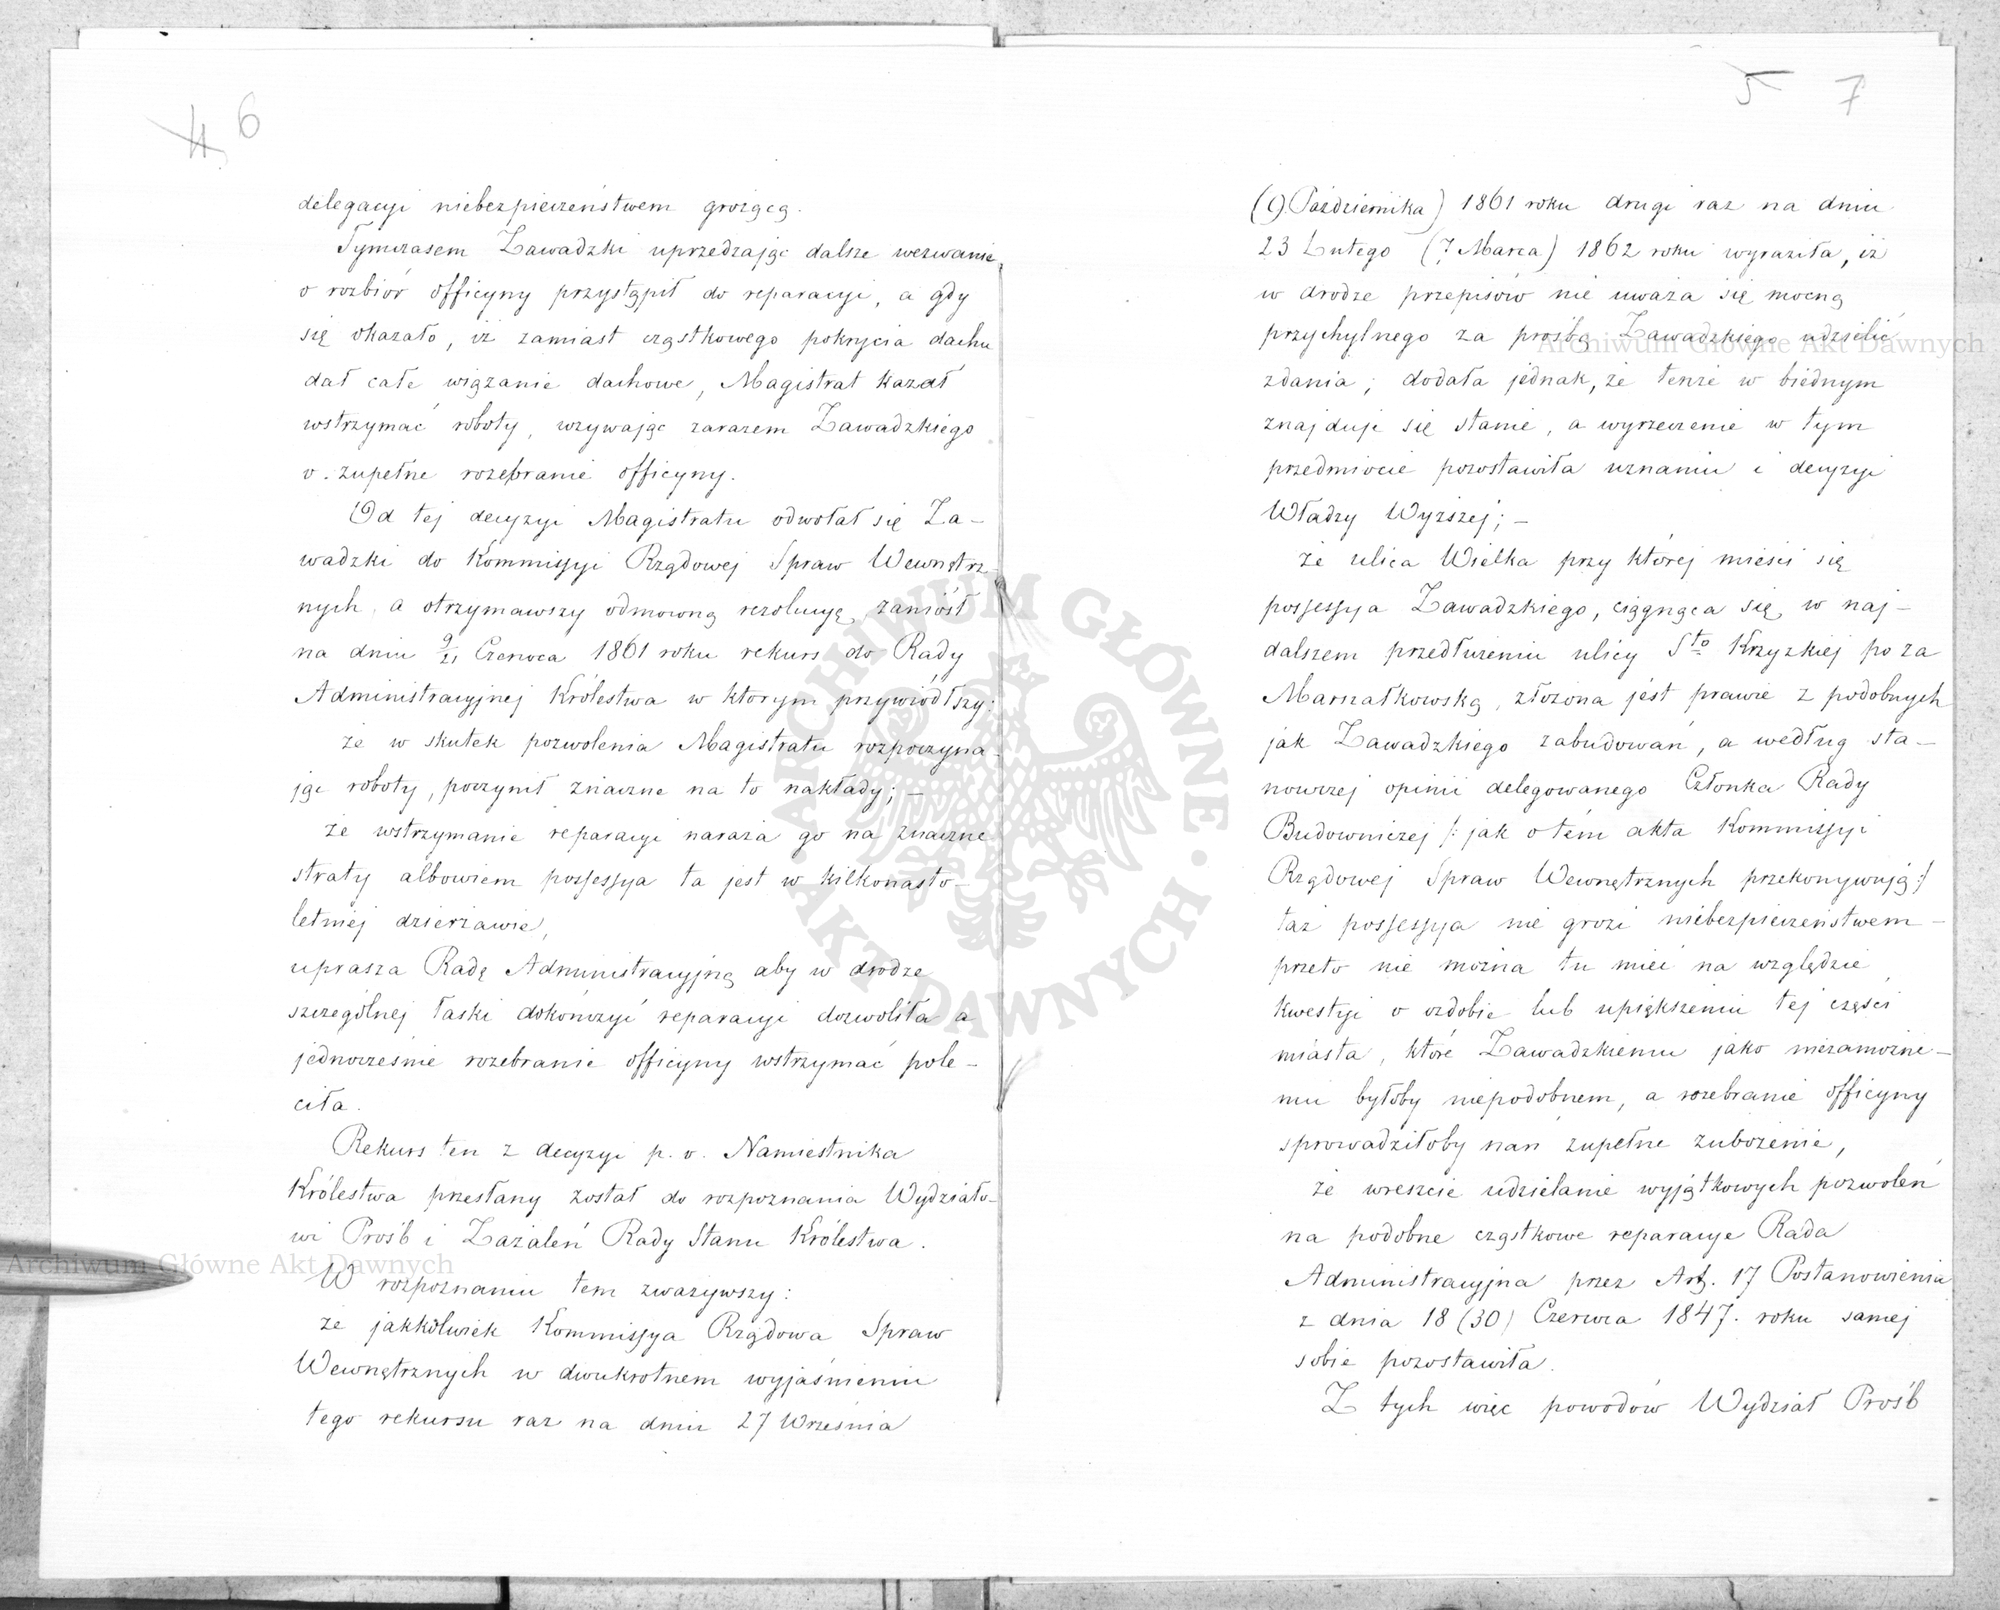 4 6
delegacyi niebezpieczeństwem grożącą.
Tymczasem Zawadzki uprzedzając dalsze wezwanie,
o rozbiór officyny przystąpił do reparacyi, a gdy
się okazało, iż zamiast cząstkowego pokrycia dachu
dał całe wiązanie dachowe, Magistrat kazał
wstrzymać roboty, wzywając zarazem Zawadzkiego
o zupełne rozebranie officyny.
Od tej decyzyi Magistratu odwołał się Za-
wadzki do Kommissyi Rządowej Spraw Wewnętrz-
nych, a otrzymawszy odmowną rezolucyę, zaniósł
na dniu 9/21 Czerwca 1861 roku rekurs do Rady
Administracyjnej Królestwa w którym przywiódłszy:
że w skutek pozwolenia Magistratu rozpoczyna-
jąc roboty, poczynił znaczne na to nakłady; –
że wstrzymanie reparacyi naraża go na znaczne
straty albowiem possessya ta jest w kilkonasto-
letniej dzierżawie,
uprasza Radę Administracyjną aby w drodze
szczególnej łaski dokończyć reparacyi dozwoliła a
jednocześnie rozebranie officyny wstrzymać pole-
ciła.
Rekurs ten z decyzyi p. o. Namiestnika
Królestwa przesłany został do rozpoznania Wydziało-
wi Próśb i Zażaleń Rady Stanu Królestwa.
W rozpoznaniu tem zważywszy:
że jakkolwiek Kommissya Rządowa Spraw
Wewnętrznych w dwukrotnem wyjaśnieniu
tego rekursu raz na dniu 27 Września
5 7
(9 Października) 1861 roku drugi raz na dniu
23 Lutego (7 Marca) 1862 roku wyraziła, iż
w drodze przepisów nie uważa się mocną
przychylnego za prośbą Zawadzkiego udzielić
zdania; dodała jednak, że tenże w biednym
znajduje się stanie, a wyrzeczenie w tym
przedmiocie pozostawiła uznaniu i decyzyi
Władzy Wyższej; –
że ulica Wielka przy której mieści się
possessya Zawadzkiego, ciągnąca się w naj-
dalszem przedłużeniu ulicy Sto Krzyzkiej po za
Marszałkowską, złożona jest prawie z podobnych
jak Zawadzkiego zabudowań, a według sta-
nowczej opinii delegowanego Członka Rady
Budowniczej /: jak o tém akta Kommissyi
Rządowej Spraw Wewnętrznych przekonywują :/
taż possessya nie grozi niebezpieczeństwem –
przeto nie można tu mieć na względzie
kwestyi o ozdobie lub upiększeniu tej części
miasta, które Zawadzkiemu jako niezamożne-
mu byłoby niepodobnem, a rozebranie officyny
sprowadziłoby nań zupełne zubożenie,
że wreszcie udzielanie wyjątkowych pozwoleń
na podobne cząstkowe reparacye Rada
Administracyjna przez Art. 17 Postanowienia
z dnia 18 (30) Czerwca 1847. roku samej
sobie pozostawiła.
Z tych więc powodów Wydział Próśb
Archiwum Główne Akt Dawnych
Archiwum Główne Akt Dawnych
ARCHIWUM GŁÓWNE · AKT DAWNYCH ·